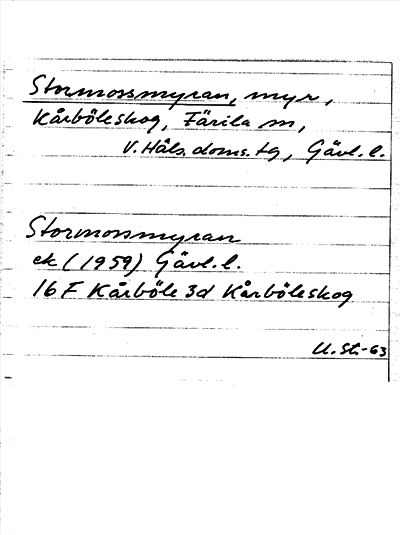 Stormossmyran, myr,
Kårböleskog, Färila sn,
V. Häls. doms. tg, Gävl. l.
Stormossmyran
ek (1959) Gävl. l.
16 F Kårböle 3d Kårböleskog
U. St. -63